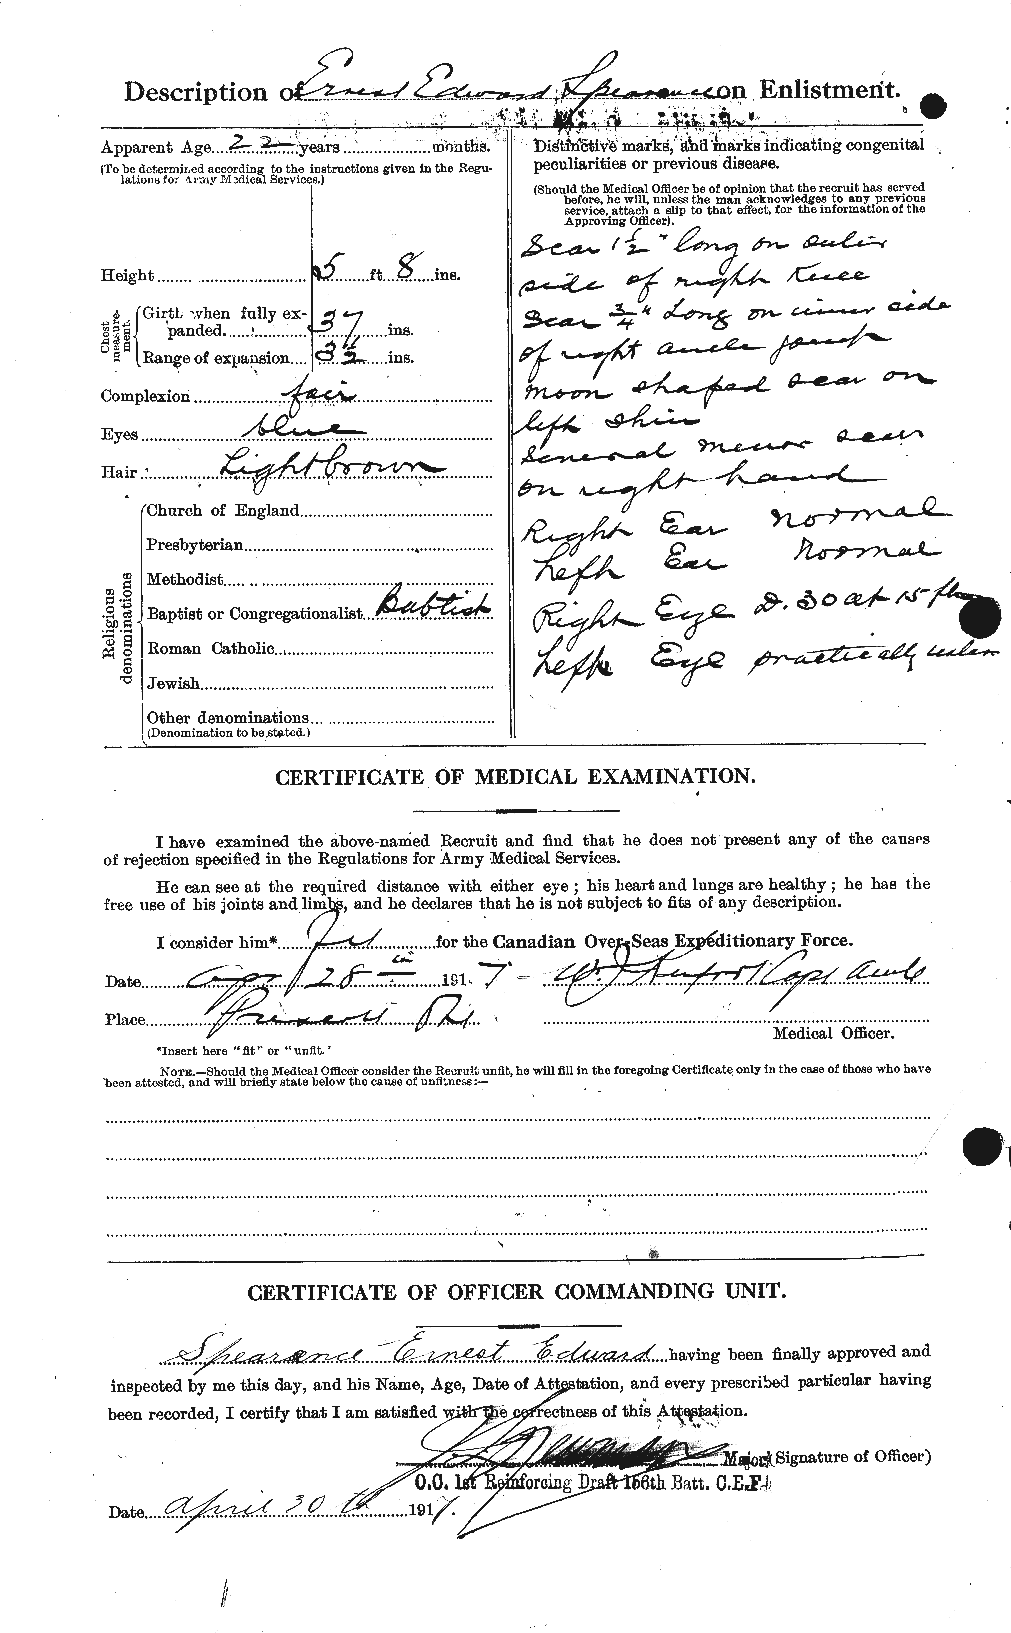 Description of Ernest Edward Spearance on Enlistment.
Apparent Age 22 years months.
(To be determined according to the instructions given in the Regu-
lations for Army Medical Services.)
Height 5 ft 8 ins.
Chest measure-ment.
Girth when fully ex-
panded 37 ins.
Range of expansion 3½ ins.
Complexion fair
Eyes blue
Hair Light brown
Religious denominations
Church of England
Presbyterian
Methodist
Baptist or Congregationalist Baptist
Roman Catholic
Jewish
Other denominations
(Denomination to be stated.)
Distinctive marks, and marks indicating congenital
peculiarities or previous disease.
(Should the Medical Officer be of opinion that the recruit has served
before, he will, unless the man acknowledges to any previous
service, attach a slip to that effect, for the information of the
Approving Officer).
Scar 1½" long on outer
side of right Knee
Scar ¾" Long on inner side
of right ancle
moon shaped scar on
left shin
Several minor scars
on right hand
Right Ear Normal
Left Ear Normal
Right Eye D. 30 at 15 ft
Left Eye practically
CERTIFICATE OF MEDICAL EXAMINATION.
I have examined the above-named Recruit and find that he does not present any of the causes
of rejection specified in the Regulations for Army Medical Services.
He can see at the required distance with either eye; his heart and lungs are healthy; he has the
free use of his joints and limbs, and he declares that he is not subject to fits of any description.
I consider him* Fit for the Canadian Over-Seas Expeditionary Force.
Date Apr 28 1917
Place Prescott
Medical Officer.
*Insert here "fit" or "unfit."
NOTE.—Should the Medical Officer consider the Recruit unfit, he will fill in the foregoing Certificate only in the case of those who have
been attested, and will briefly state below the cause of unfitness:—
CERTIFICATE OF OFFICER COMMANDING UNIT.
Spearance Ernest Edward having been finally approved and
inspected by me this day, and his Name, Age, Date of Attestation, and every prescribed particular having
been recorded, I certify that I am satisfied with the correctness of this Attestation.
Major (Signature of Officer)
O.C. 1st Reinforcing Draft 156th Batt. C.E.F.
Date April 30th 1917.